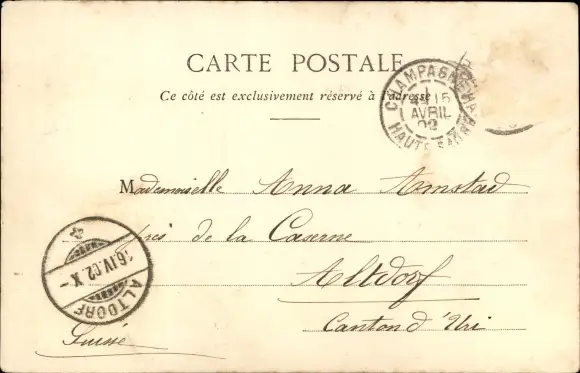 CARTE POSTALE
Ce côté est exclusivement réservé à l'adresse
CHAMPAGNEY
15
AVRIL
02
HAUTE SAONE
Mademoiselle Anna Amstad
près de la Caserne
Altdorf
Canton d'Uri
Suisse
16.IV.02.X-
ALTDORF